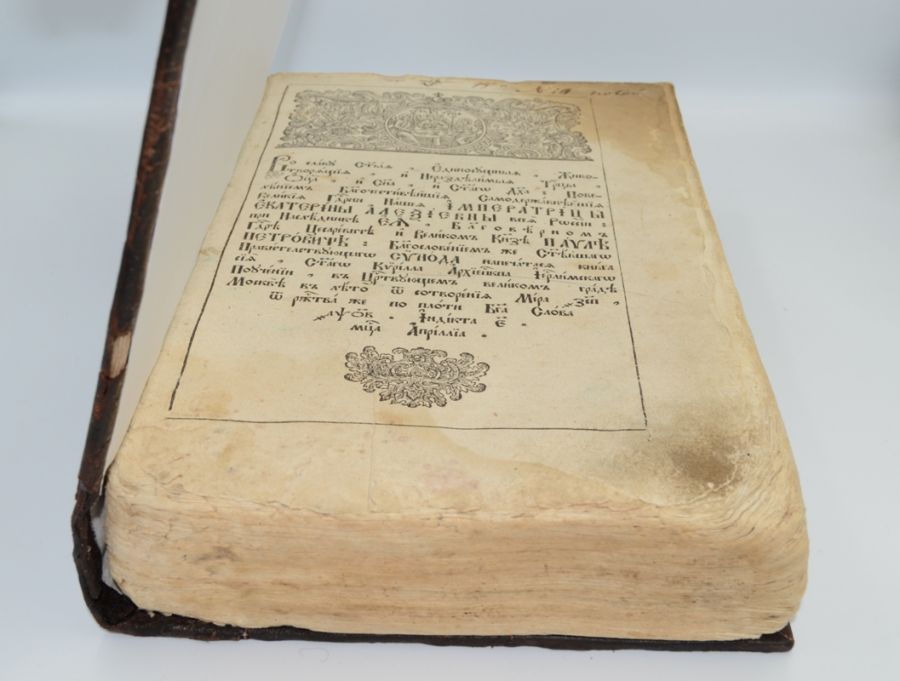 Во славу Ст҃ыя , Единосущныя , Живо-
творящія , и Нераздѣлимыя Трⷪ҇цы ,
Оц҃а , и Сн҃а , и Ст҃аго Дх҃а : Пове-
лѣніемъ Благочестивѣйшія Самодержавнѣйшія
Великія Гдⷭ҇рни Нашея ІМПЕРАТРИЦЫ
ЕКАТЕРІНЫ АЛЕѮІЕВНЫ всея Рѡссіи :
при Наслѣдникѣ ЕѦ , Благовѣрномъ
Гдⷭ҇рѣ Цесаревичѣ и Великомъ Кн҃зѣ ПАУЛѢ
ПЕТРОВИЧѢ : Благословеніемъ же Ст҃ѣйшагѡ
Правителствующагѡ СУНОДА напечатася книга
сія , Ст҃агѡ Кѷрілла Архіепⷭ҇кпа Іерⷭ҇лимскагѡ
Поученіи , въ Црⷭ҇твующемъ великомъ градѣ
Москвѣ въ лѣто ѿ сотворенія Міра
ѿ рждⷭ҇тва же по плоти Бг҃а Слова
҂аѱѻ҃в , Індікта е҃
мцⷭ҇а Апріллія .